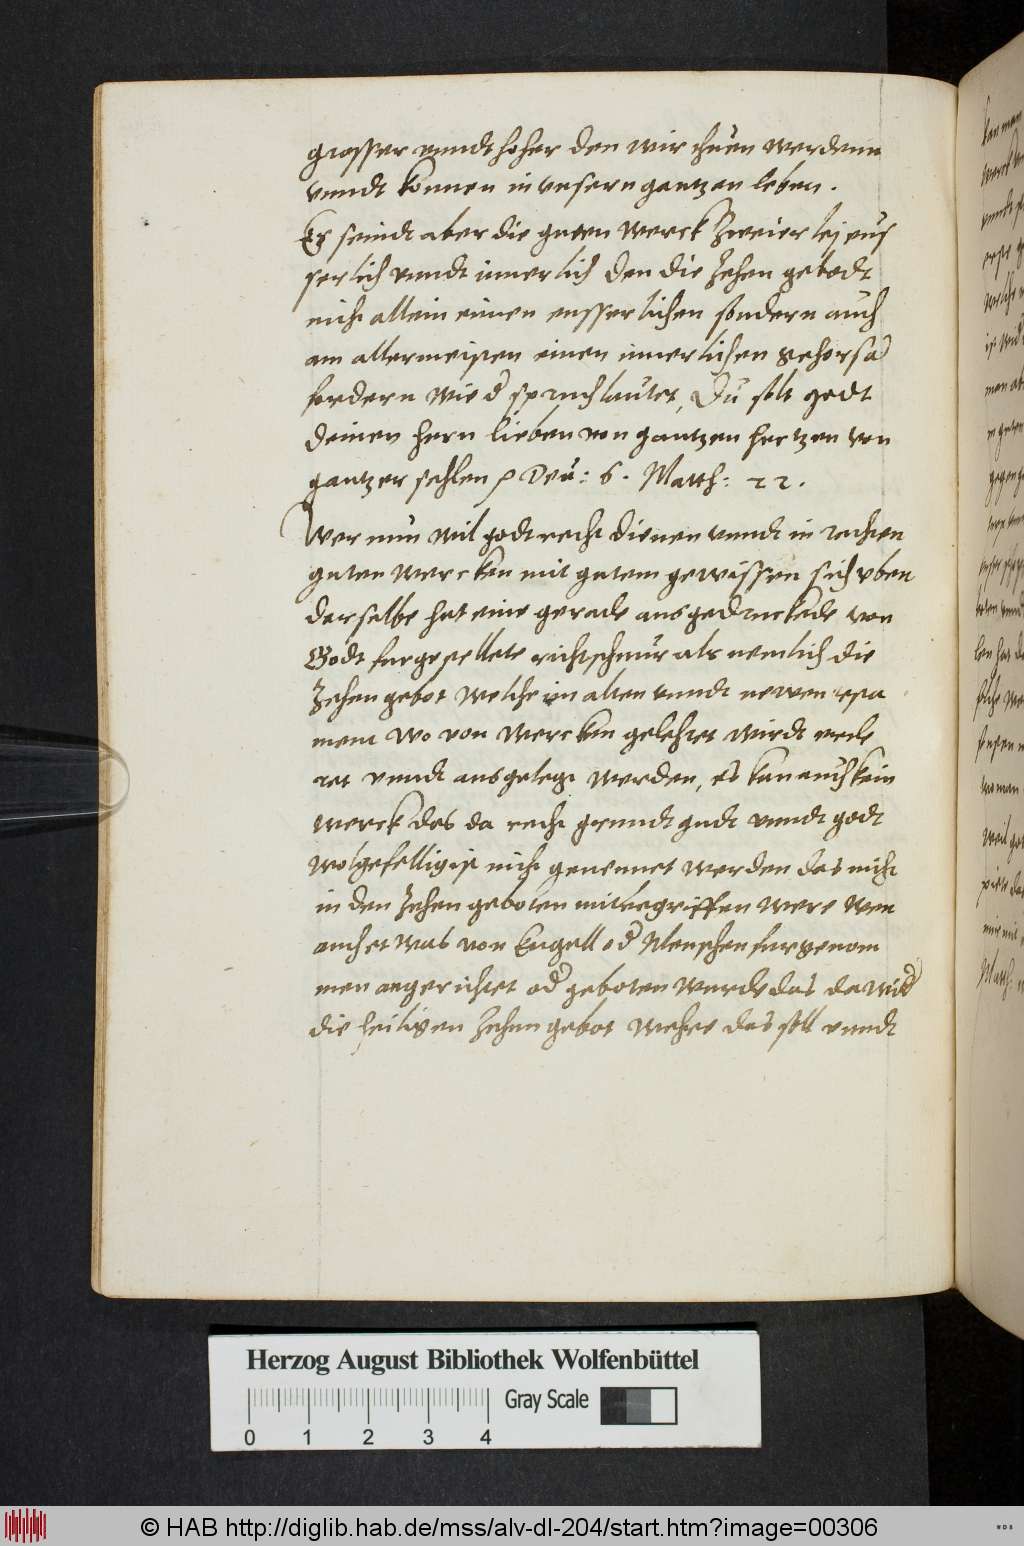 grosser vnndt hoher den wir thuen werdenn
vnndt konnen in vnsern gantzen leben.
Es seindt aber die guten Werck Zweierlej eus
serlich vnndt innerlich den die Zehen gebodt
nicht allein einen eusserlichen sondern auch
am allermeisten einen innerlichen gehorsā
fordern wie d spruch lautet, Du solt godt
deinen hern lieben von gantzen hertzen von
gantzer sehlen Deu: 6. Matth: 22.
Wer nun wil godt recht dienen vnndt in rechten
guten Wercken mit gutem gewissen sich vben
derselbe hat eine gerade ausgedruckede von
Godt furgestellete richtschnur als nemlich die
Zehen gebot welche im alten vnndt newen testa
ment wo von Wercken gelehret wirdt
vnndt ausgelegt werden, es kan auch kein
werck das da recht grundt gudt vnndt godt
wolgefellig ist nicht genennet werden das nicht
in den Zehen geboten mit begriffen were Wen
auch etwas von Engell od Menschen furgenom
men angerichtet od geboten wurde das da wid
die heiligen Zehen gebot wehre das soll vnndt
Matth:
Herzog August Bibliothek Wolfenbüttel
Gray Scale
0 1 2 3 4
© HAB http://diglib.hab.de/mss/alv-dl-204/start.htm?image=00306